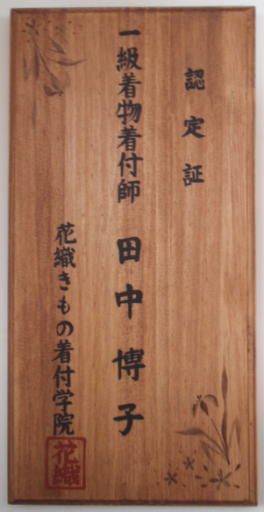 認定証
一級着物着付師 田中博子
花織きもの着付学院
花織